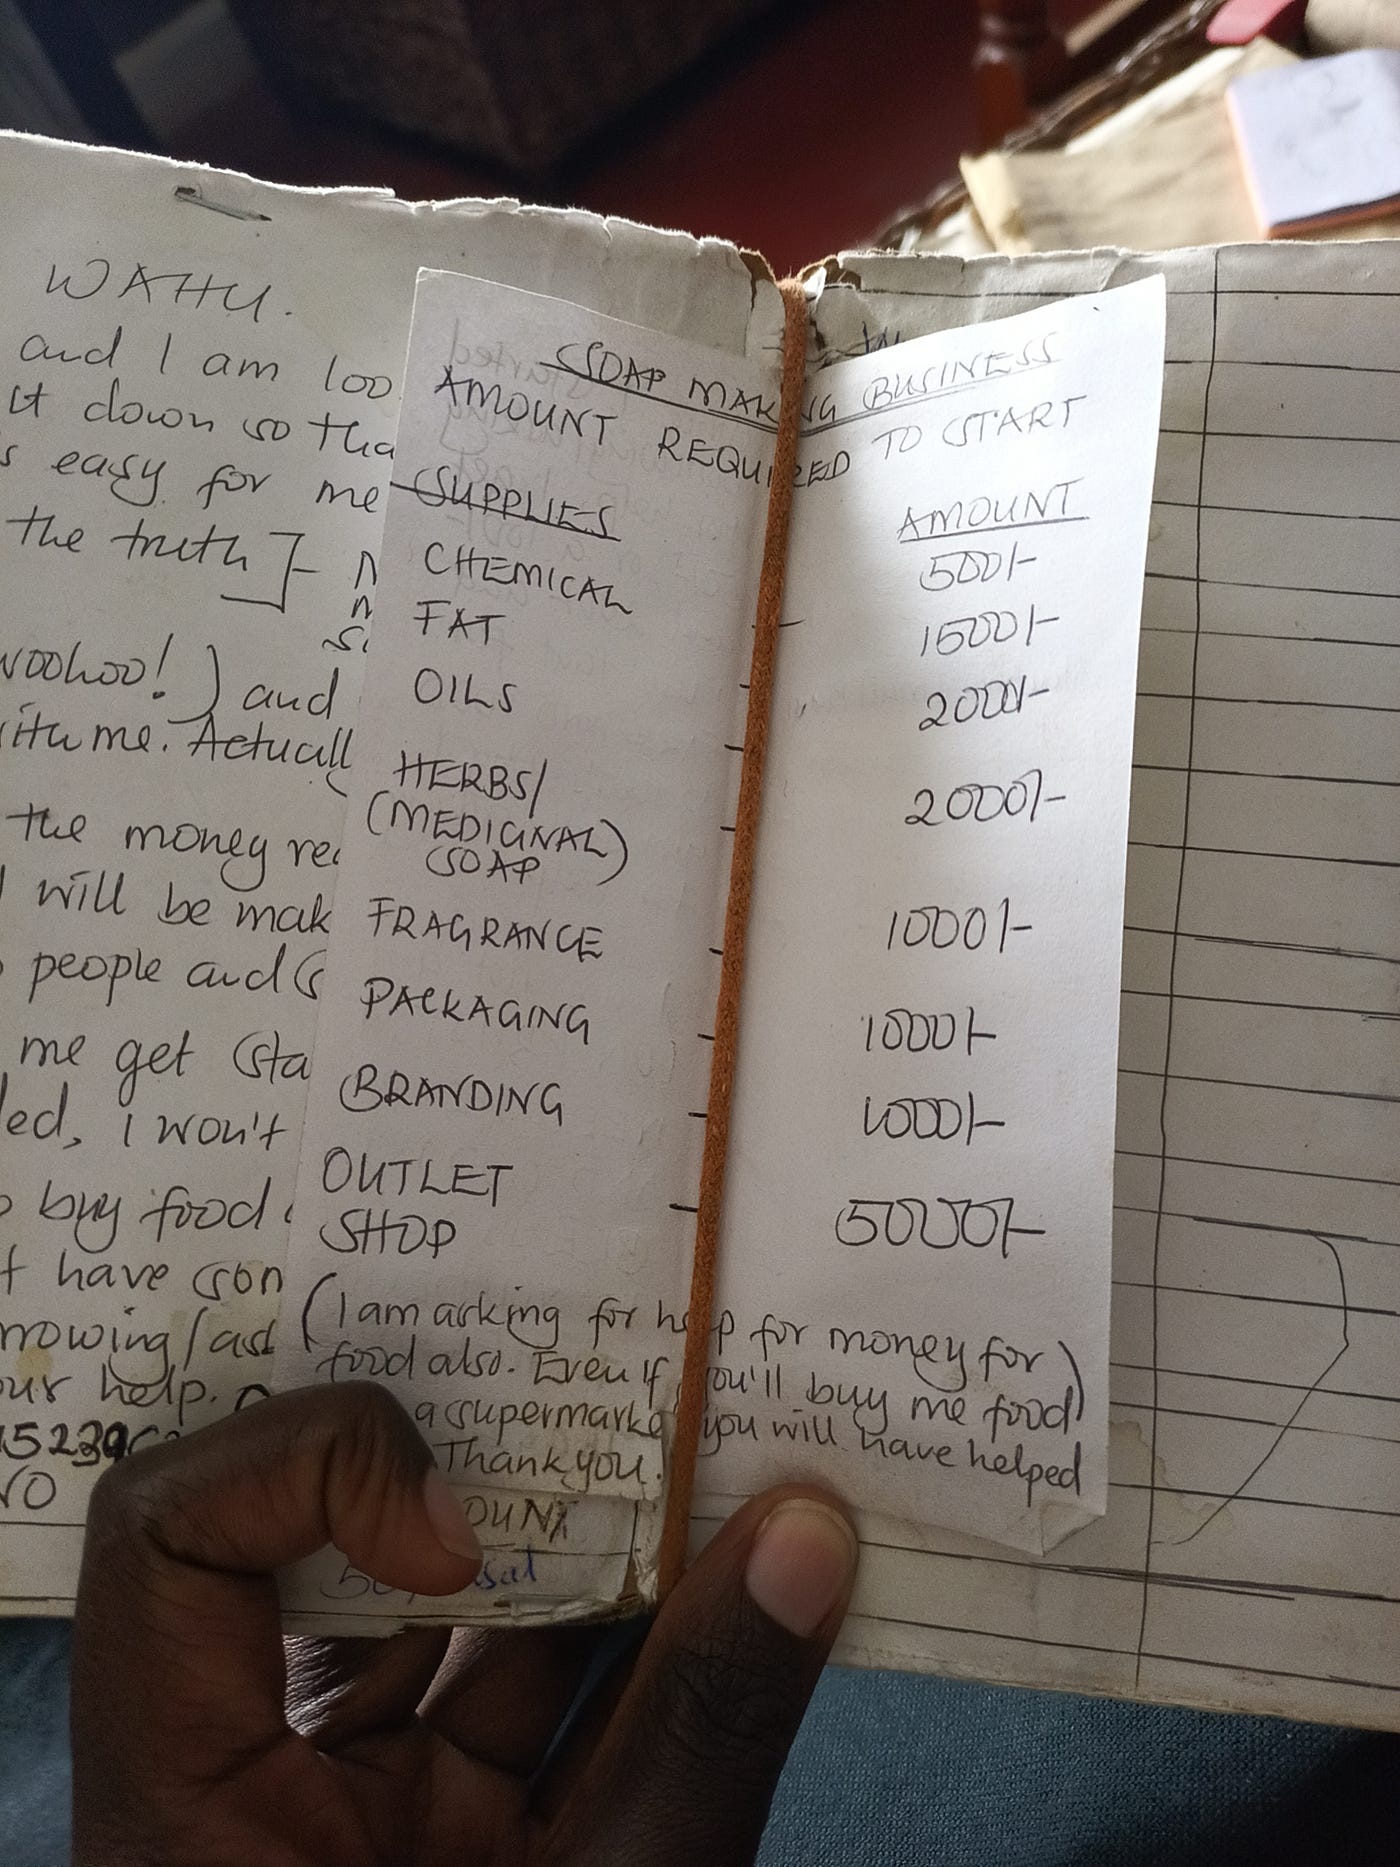 WAHU.
and I am loo
it down so tha
s easy for me
the truth]-
woohoo!) and
with me. Actuall
the money rec
will be mak
people and
me get sta
led, I won't
buy food
t have son
rrowing/ask
our help.
SOAP MAKING BUSINESS
AMOUNT REQUIRED TO START
SUPPLIES AMOUNT
CHEMICAL 500/-
FAT 1500/-
OILS 2000/-
HERBS/
(MEDICINAL) 2000/-
SOAP
FRAGRANCE 1000/-
PACKAGING 1000/-
BRANDING 1000/-
OUTLET
SHOP 5000/-
(I am asking for help for money for
food also. Even if you'll buy me food)
a supermarket you will have helped
Thank you.
OUNT